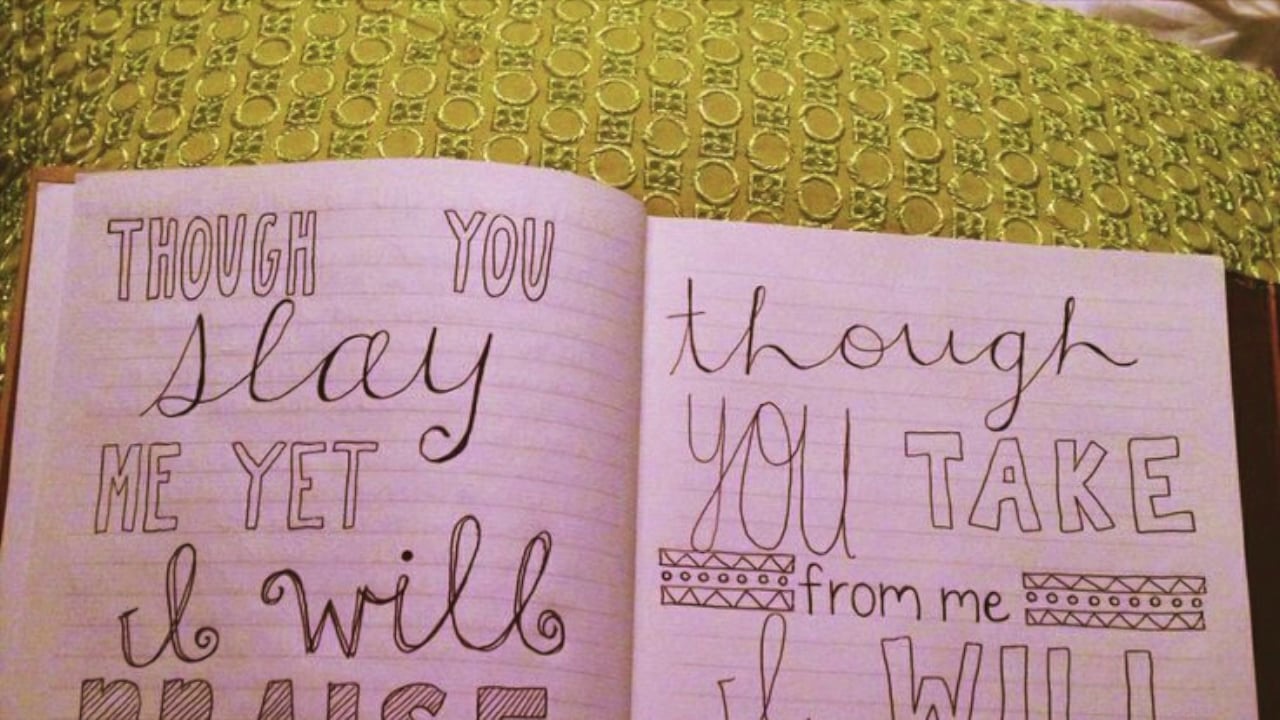 THOUGH YOU
slay
ME YET
I will
PRAISE
though
YOU TAKE
from me
I WILL